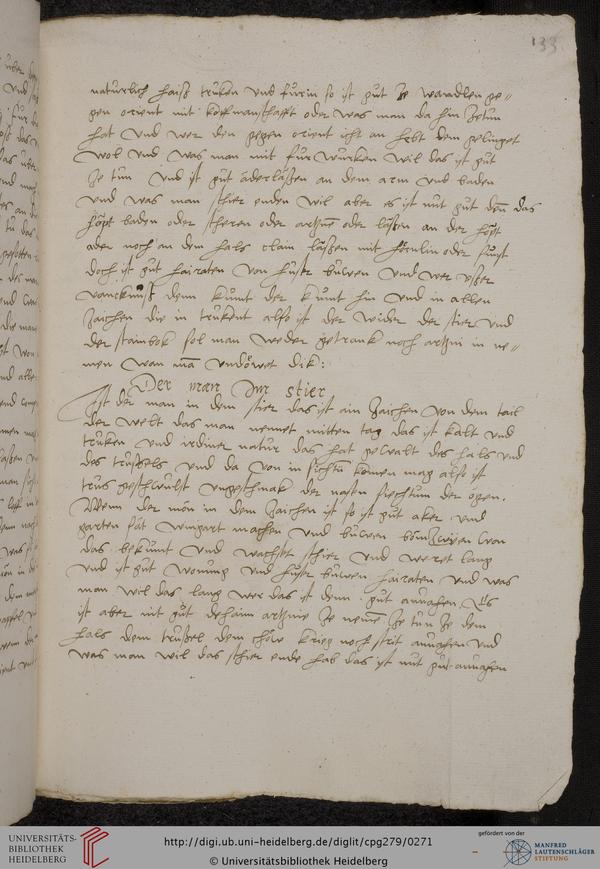 133
natturlich haiß truken vnd fürin so ist gut ze wandlen ge¬
gen orient mit koffmanschafft oder was man da hin zetun
hat vnd wer den gegen orient icht an hebt dem gelinget
wol vnd was man mit für würken wil das ist gut
ze tun vnd ist gut aderlassen an dem arm vnd baden
vnd was man schier enden wil aber es ist nit gut den das
hopt baden oder scheren oder lassen an der
oder noch an dem hals lassen mit hörnlin oder sunst
doch ist gut hairaten von huser buwen vnd wer
denn kumt der kumt hin vnd in allen
zaichen die in trukent also ist der wider der stier vnd
der stainbok sol man weder getrank noch artzni in ne¬
men wan man vndöwet dik:
Der man Im stier
Ist der man in dem stier das ist ain zaichen von dem tail
der welt das man nennet mitten tag das ist kalt vnd
truken vnd irdiner natur das hat gewalt des hals vnd
des trussels vnd da von in siechtum komen mag als ist
geschwulst der nasen siechtum der ogen.
Wenn der man in dem zaichen ist so ist gut aker vnd
garten wingart machen vnd buwen wan
das bekumt vnd wachset schier vnd weret lang
vnd ist gut wonung vnd huser buwen hairaten vnd was
man wil das lang wer das ist denn gut anvahen Es
ist aber nit gut dehain artznie ze tun ze dem
hals dem trussel dem krieg noch strit anvahen vnd
was man wil das schier ende hab das ist nit gut anvahen
UNIVERSITÄTS-
BIBLIOTHEK
HEIDELBERG
http://digi.ub.uni-heidelberg.de/diglit/cpg279/0271
© Universitätsbibliothek Heidelberg
gefördert von der
MANFRED
LAUTENSCHLÄGER
STIFTUNG